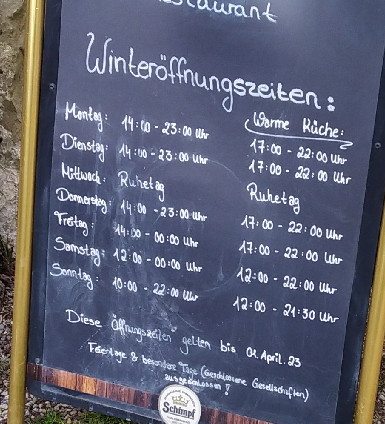 Restaurant
Winteröffnungszeiten:
Warme Küche:
Montag: 14:00 - 23:00 Uhr 17:00 - 22:00 Uhr
Dienstag: 14:00 - 23:00 Uhr 17:00 - 22:00 Uhr
Mittwoch: Ruhetag Ruhetag
Donnerstag: 14:00 - 23:00 Uhr 17:00 - 22:00 Uhr
Freitag: 14:00 - 00:00 Uhr 17:00 - 22:00 Uhr
Samstag: 12:00 - 00:00 Uhr 12:00 - 22:00 Uhr
Sonntag: 10:00 - 22:00 Uhr 12:00 - 21:30 Uhr
Diese Öffnungszeiten gelten bis 01. April. 23
Feiertage & besondere Tage (Geschlossene Gesellschaften)
ausgeschlossen!
Schimpf